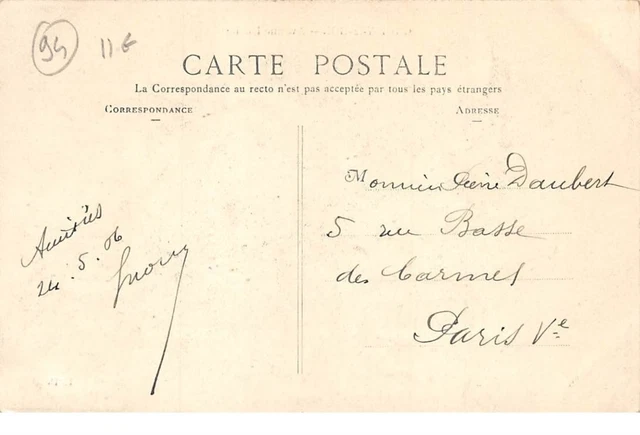 94 11 €
CARTE POSTALE
La Correspondance au recto n'est pas acceptée par tous les pays étrangers
CORRESPONDANCE
ADRESSE
Amitiés
24.5.06
Monsieur Pierre Daubert
5 rue Basse
des Carmes
Paris Ve